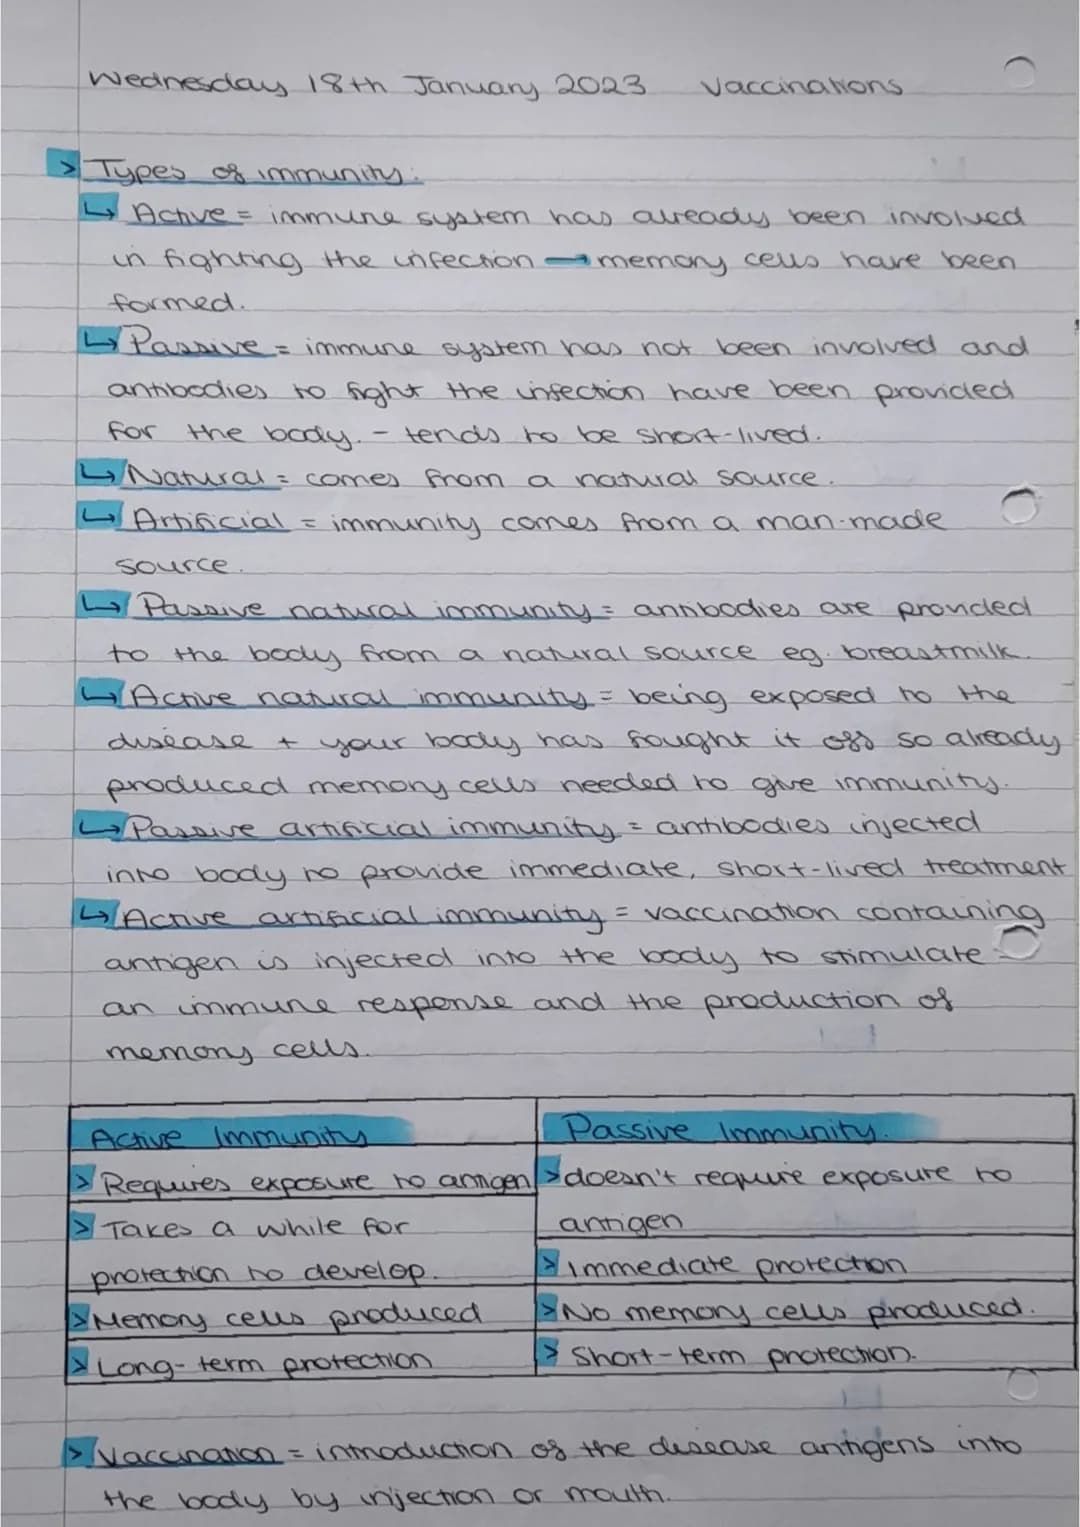 Wednesday 18th January 2023 Vaccinations
> Types of immunity:
↳ Active = immune system has already been involved
in fighting the infection → memory cells have been
formed.
↳ Passive = immune system has not been involved and
antibodies to fight the infection have been provided
for the body. - tends to be short-lived.
↳ Natural = comes from a natural source.
↳ Artificial = immunity comes from a man-made
source.
↳ Passive natural immunity = antibodies are provided
to the body from a natural source eg. breastmilk.
↳ Active natural immunity = being exposed to the
disease + your body has fought it off so already
produced memory cells needed to give immunity.
↳ Passive artificial immunity = antibodies injected
into body to provide immediate, short-lived treatment
↳ Active artificial immunity = vaccination containing
antigen is injected into the body to stimulate
an immune response and the production of
memory cells.
Active Immunity
> Requires exposure to antigen
> Takes a while for
protection to develop.
> Memory cells produced
> Long-term protection
Passive Immunity.
> doesn't require exposure to
antigen
> Immediate protection
> No memory cells produced.
> Short-term protection.
> Vaccination = introduction of the disease antigens into
the body by injection or mouth.